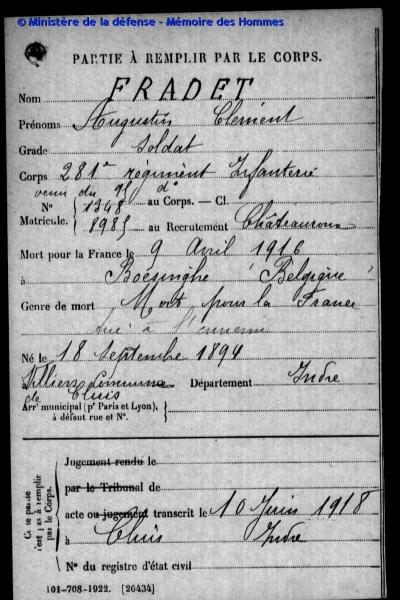 © Ministère de la défense - Mémoire des Hommes
PARTIE À REMPLIR PAR LE CORPS.
Nom FRADET
Prénoms Augustin Clément
Grade Soldat
Corps 281e régiment Infanterie
venu du 9 d°
N° 1348 au Corps. — Cl.
Matricule. 898 au Recrutement Châteauroux
Mort pour la France le 9 Avril 1916
à Boesinghe (Belgique)
Genre de mort Mort pour la France
tué à l'ennemi
Né le 18 Septembre 1894
à Villiers Commune Département Indre
de Cluis
Arr^t municipal (p^r Paris et Lyon),
à défaut rue et N°.
Ce te partie
n'est pas à remplir
par le Corps.
Jugement rendu le
par le Tribunal de
acte ou jugement transcrit le 10 Juin 1918
à Cluis Indre
N° du registre d'état civil
101-708-1922. [26434]